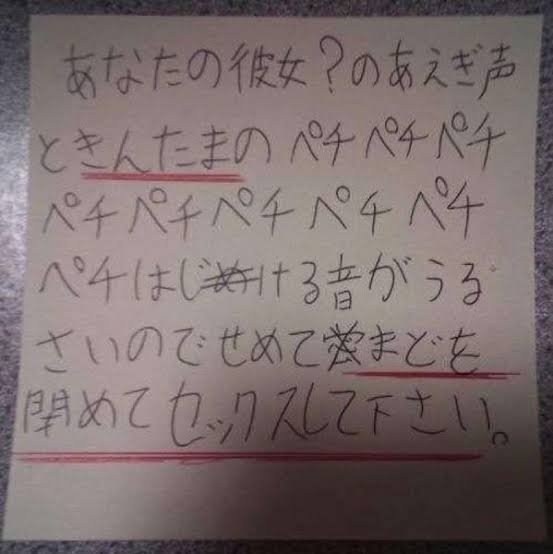 あなたの彼女?のあえぎ声
ときんたまの ペチペチペチ
ペチペチペチペチペチ
ペチはじける音がうる
さいのでせめてまどを
閉めてセックスして下さい。